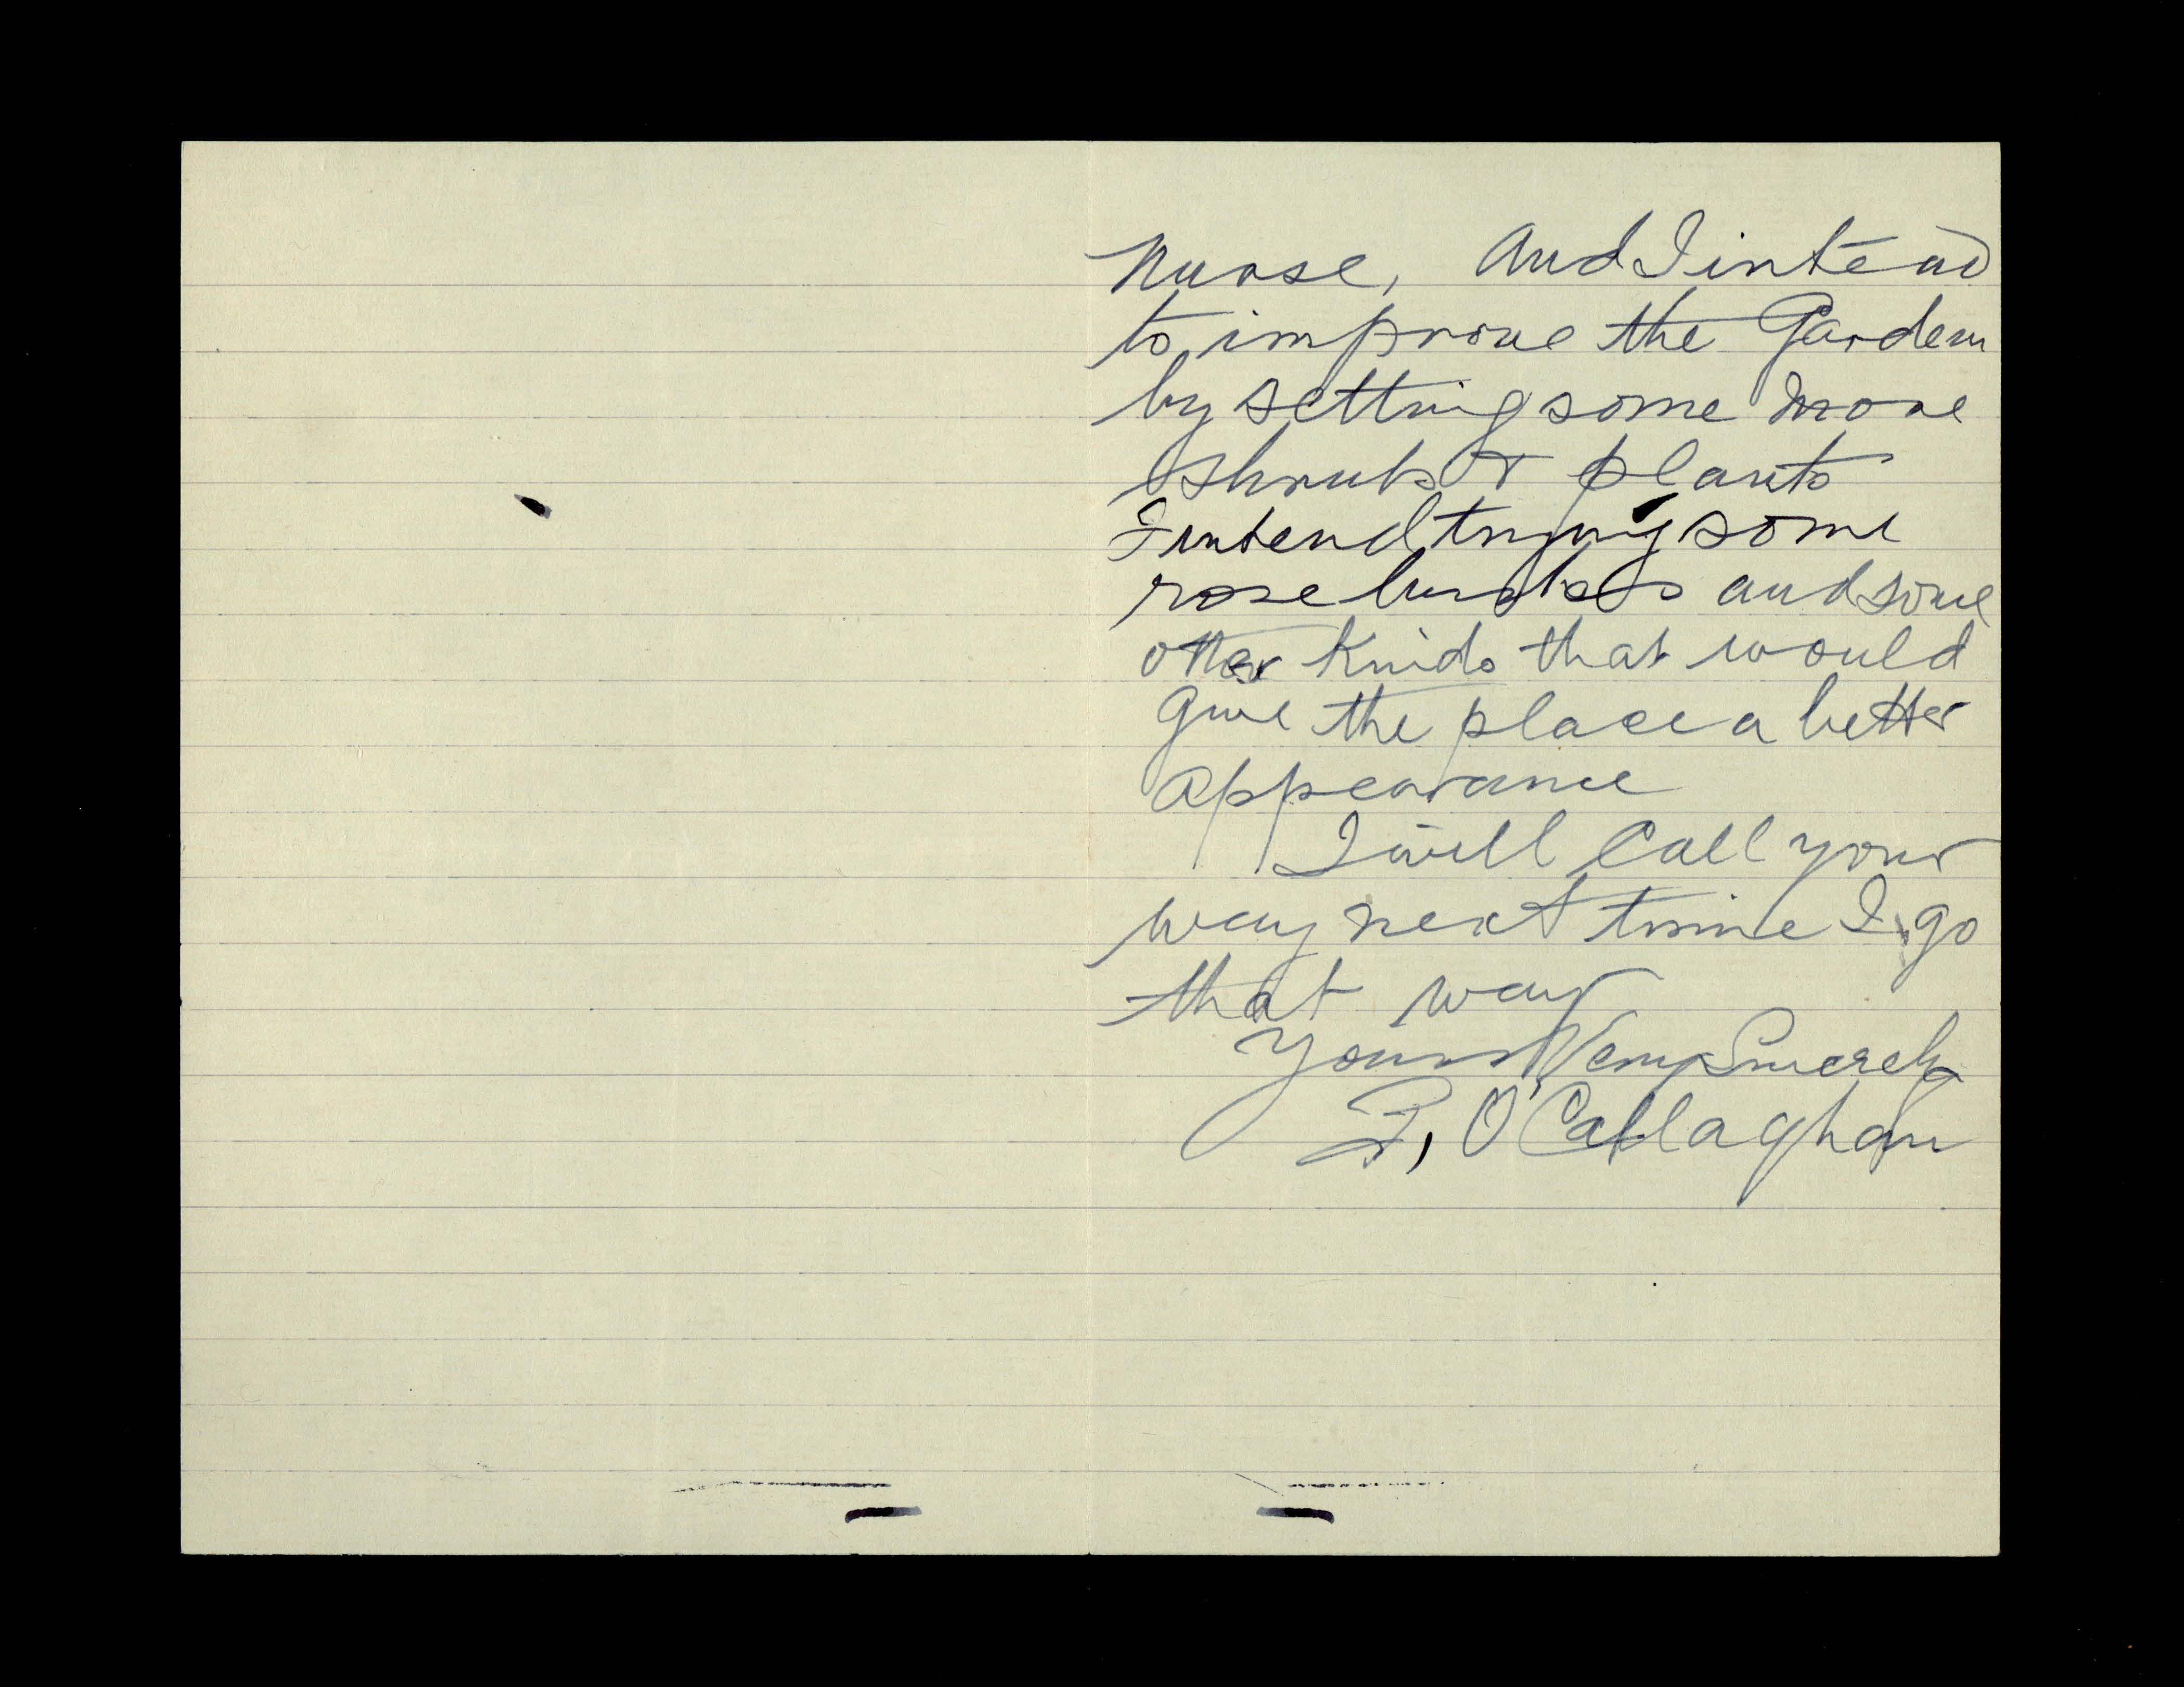 Nurse, And I intend
to improve the Garden
by setting some more
shrubs & plants
I intend trying some
rose bushes and some
other Kinds that would
Give the place a better
appearance
I will Call your
way next time I go
that way
Yours Very Sincerely
O'Callaghan